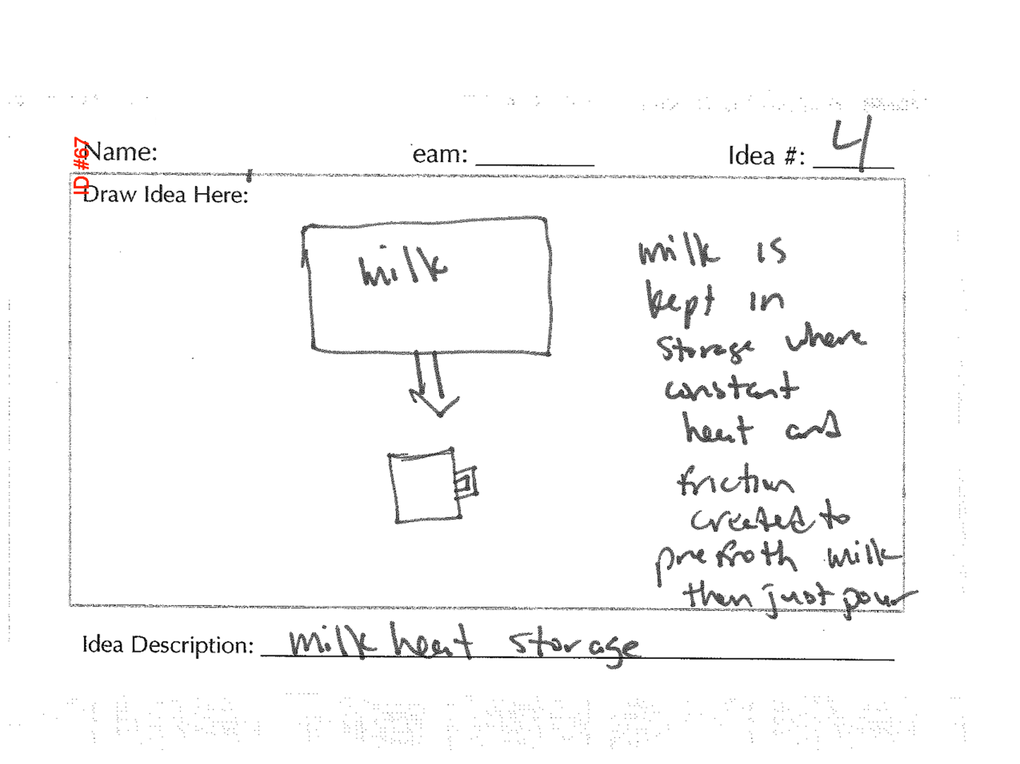 ID #67
Name: eam: Idea #: 4
Draw Idea Here:
milk
milk is
kept in
storage where
constant
heat and
friction
created to
prefroth milk
then just pour
Idea Description: milk heat storage